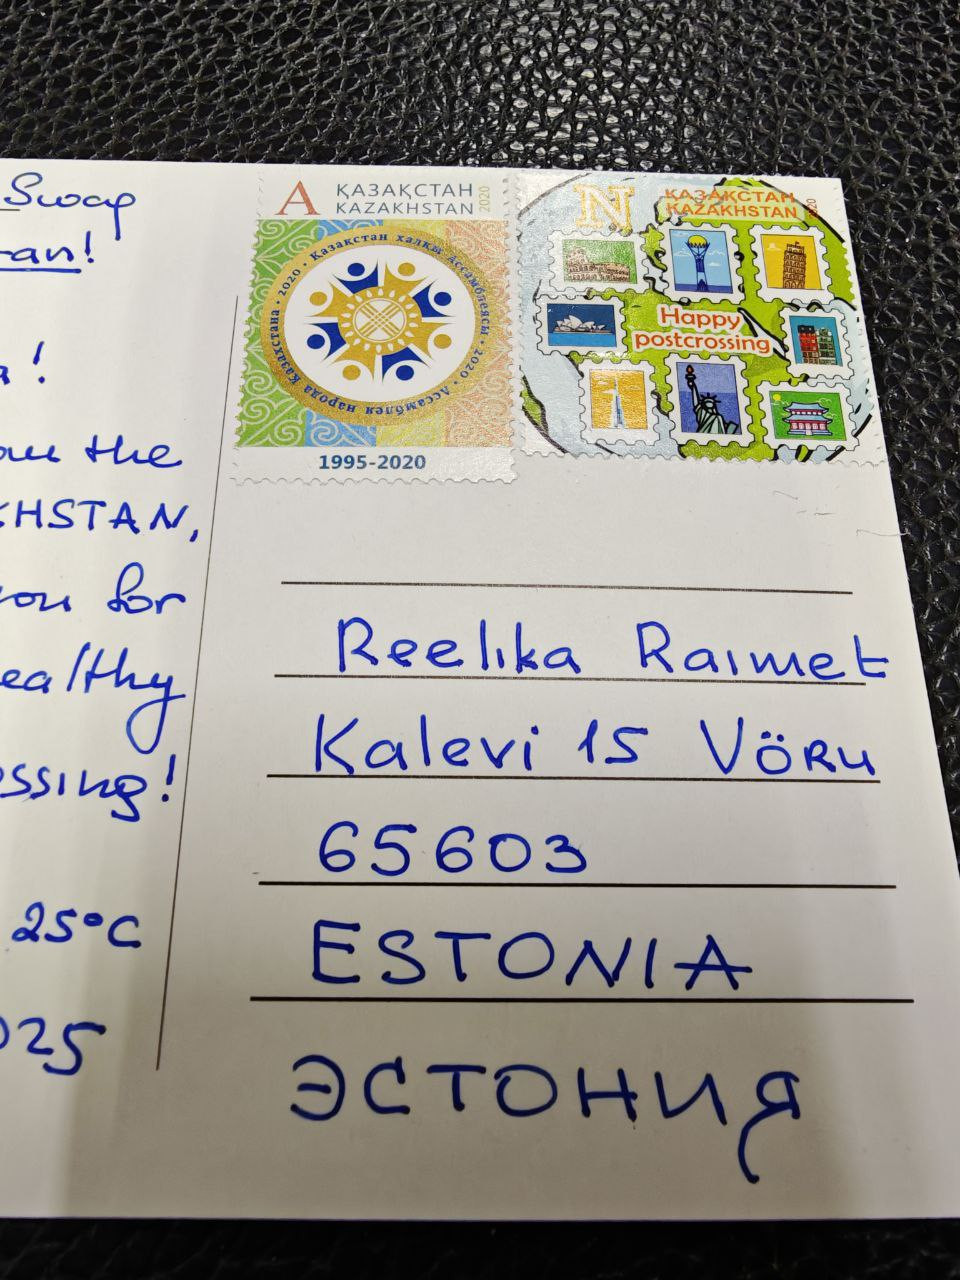 Swap
!
!
the
KHSTAN,
for
ealthy
ossing!
25°C
025
A ҚАЗАҚСТАН
KAZAKHSTAN 2020
2020 • Қазақстан халқы Ассамблеясы • 2020 • Ассамблея народа Казахстана •
1995-2020
N ҚАЗАҚСТАН
KAZAKHSTAN 2020
Happy
postcrossing
Reelika Raimet
Kalevi 15 Vöru
65603
ESTONIA
ЭСТОНИЯ